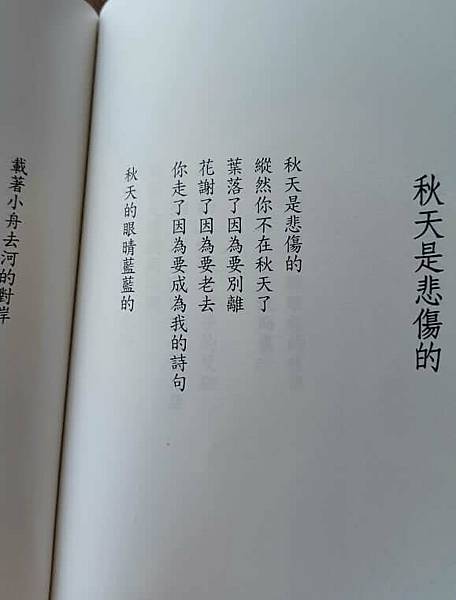 秋天是悲傷的
秋天是悲傷的
縱然你不在秋天了
葉落了因為要別離
花謝了因為要老去
你走了因為要成為我的詩句
秋天的眼睛藍藍的
載著小舟去河的對岸